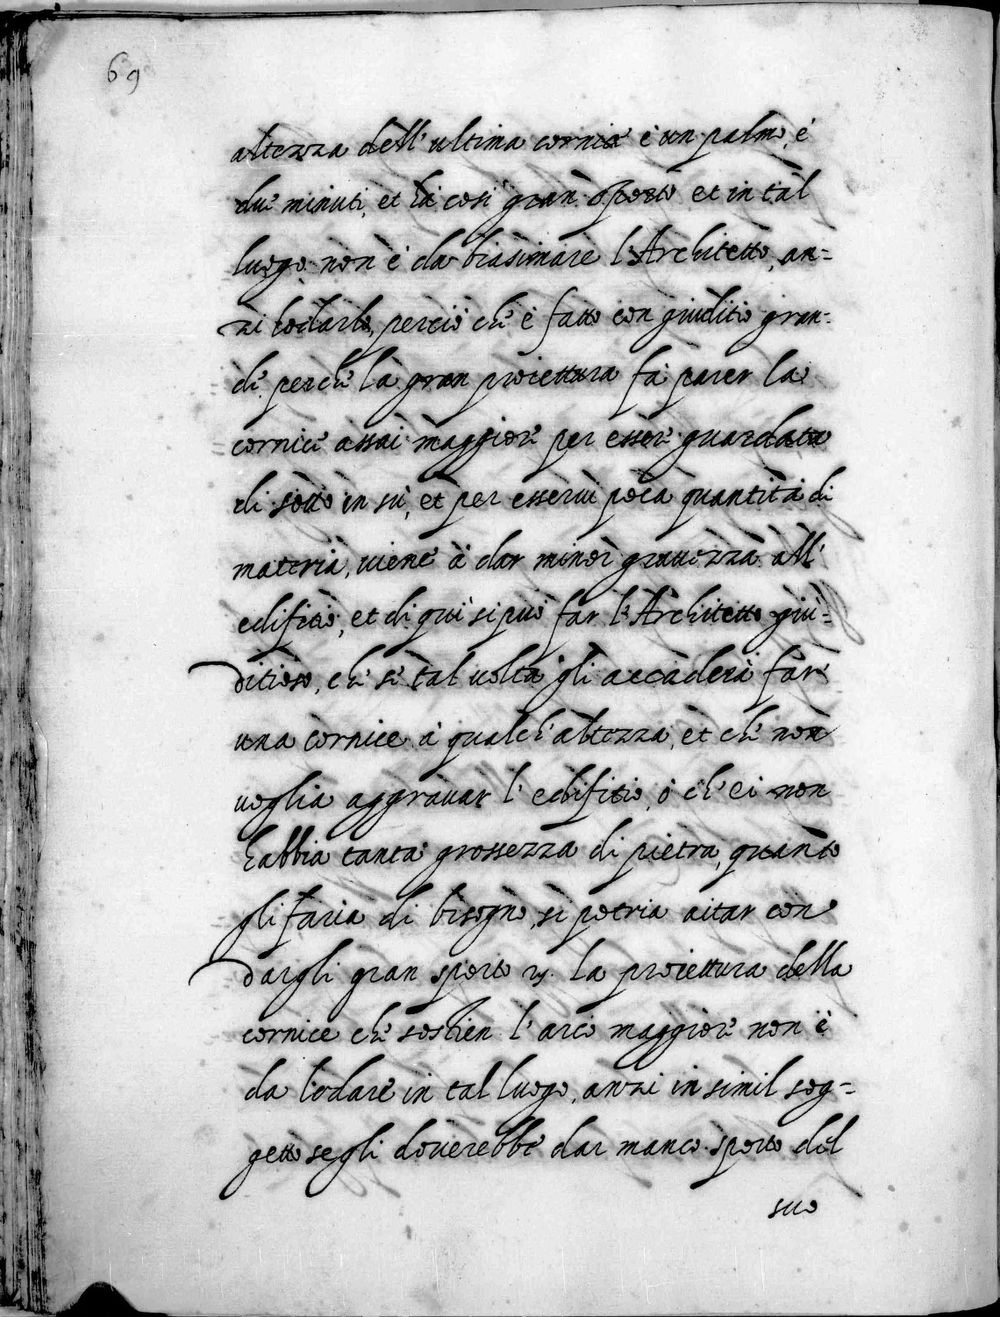 69
altezza dell' ultima cornice è un palmo, é
due minuti, et hà cosi gran sporto et in tàl
luogo non è da biasimare l'Architetto, an=
zi lodarlo, perciò che è fatto con giuditio gran=
de perche la gran proiettura fà parer la
cornice assai maggiore per esser guardata
di sotto in sù, et per esserui poca quantità di
materia, uiene à dar minor grauezza all'
edifitio, et di qui si può far l'Architetto giu=
ditioso, che se tal uolta gli accaderà far
una cornice à qualche altezza, et che non
uoglia aggrauar l' edifitio, ò ch' ei non
habbia tanta grossezza di pietra, quanto
gli faria di bisogno, si potria aitar con
dargli gran sporto rj. La proiettura della
cornice che sostien l' arco maggiore non è
da lodare in tal luogo, anzi in simil sog=
getto segli douerebbe dar manco sporto del
suo